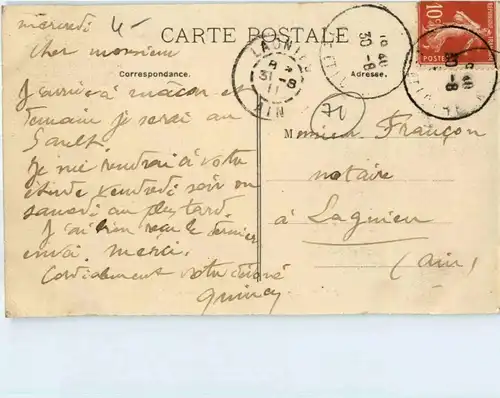 mercredi
CARTE POSTALE
cher monsieur
Correspondance.
Adresse.
J'arrive à macon et
demain je serai au
Sault.
Je me rendrai à votre
étude vendredi soir ou
samedi au plus tard.
J'ai bien reçu le dernier
envoi. merci.
Cordialement votre dévoué
LAGNIEU
8
31-8
11
AIN
18 40
30-8
70
10
POSTES
18 40
30-8
Monsieur Françon
notaire
à Lagnieu
(Ain)